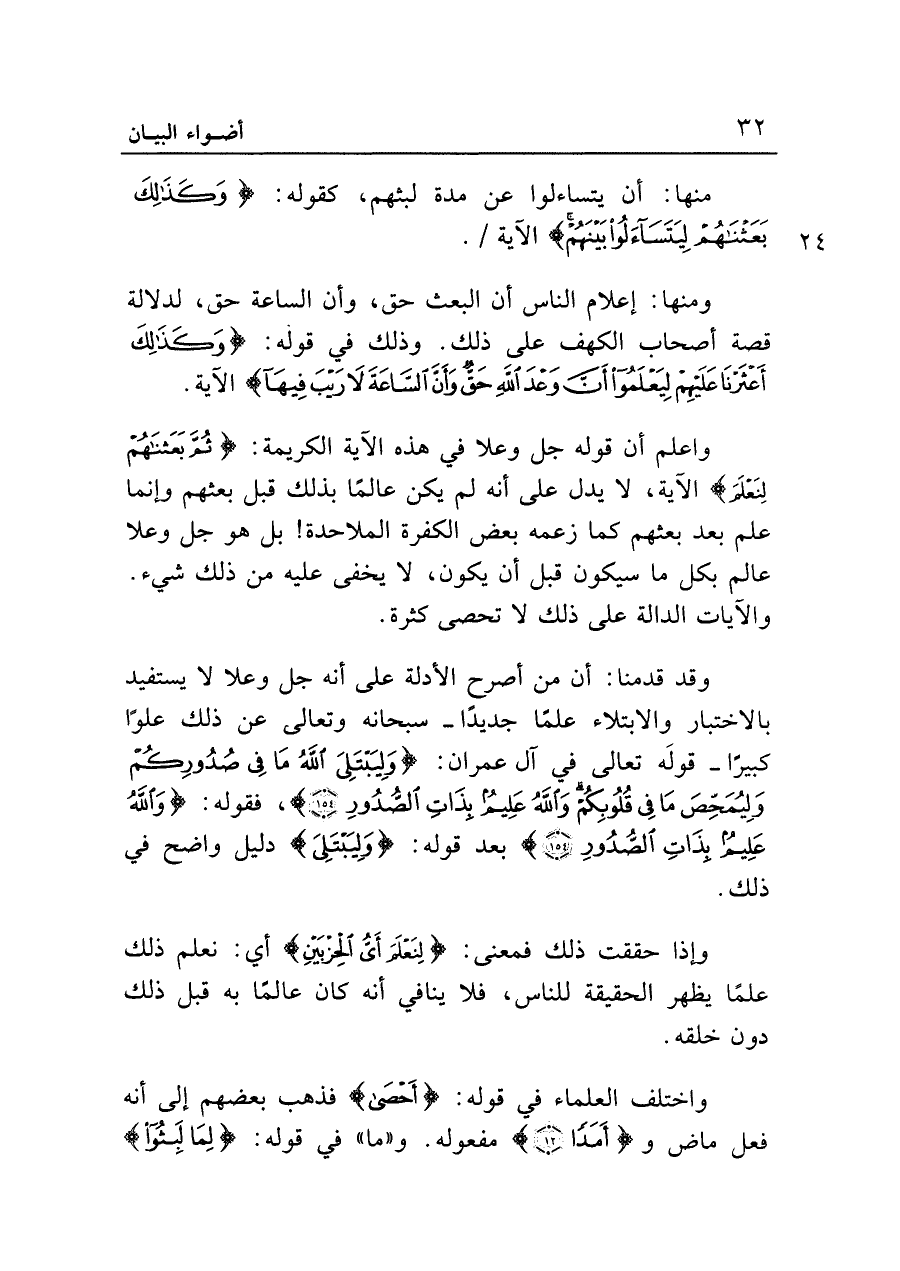 ٣٢ أضـواء البيـان
منها: أن يتساءلوا عن مدة لبثهم، كقوله: ﴿وَكَذَٰلِكَ
بَعَثْنَٰهُمْ لِيَتَسَآءَلُوا۟ بَيْنَهُمْۚ﴾ الآية / . ٢٤
ومنها: إعلام الناس أن البعث حق، وأن الساعة حق، لدلالة
قصة أصحاب الكهف على ذلك. وذلك في قوله: ﴿وَكَذَٰلِكَ
أَعْثَرْنَا عَلَيْهِمْ لِيَعْلَمُوٓا۟ أَنَّ وَعْدَ ٱللَّهِ حَقٌّ وَأَنَّ ٱلسَّاعَةَ لَا رَيْبَ فِيهَآ﴾ الآية.
واعلم أن قوله جل وعلا في هذه الآية الكريمة: ﴿ثُمَّ بَعَثْنَٰهُمْ
لِنَعْلَمَ﴾ الآية، لا يدل على أنه لم يكن عالمًا بذلك قبل بعثهم وإنما
علم بعد بعثهم كما زعمه بعض الكفرة الملاحدة! بل هو جل وعلا
عالم بكل ما سيكون قبل أن يكون، لا يخفى عليه من ذلك شيء.
والآيات الدالة على ذلك لا تحصى كثرة.
وقد قدمنا: أن من أصرح الأدلة على أنه جل وعلا لا يستفيد
بالاختبار والابتلاء علمًا جديدًا ـ سبحانه وتعالى عن ذلك علوًا
كبيرًا ـ قولَه تعالى في آل عمران: ﴿وَلِيَبْتَلِىَ ٱللَّهُ مَا فِى صُدُورِكُمْ
وَلِيُمَحِّصَ مَا فِى قُلُوبِكُمْۗ وَٱللَّهُ عَلِيمٌۢ بِذَاتِ ٱلصُّدُورِ ١٥٤﴾، فقوله: ﴿وَٱللَّهُ
عَلِيمٌۢ بِذَاتِ ٱلصُّدُورِ ١٥٤﴾ بعد قوله: ﴿وَلِيَبْتَلِىَ﴾ دليل واضح في
ذلك.
وإذا حققت ذلك فمعنى: ﴿لِنَعْلَمَ أَىُّ ٱلْحِزْبَيْنِ﴾ أي: نعلم ذلك
علمًا يظهر الحقيقة للناس، فلا ينافي أنه كان عالمًا به قبل ذلك
دون خلقه.
واختلف العلماء في قوله: ﴿أَحْصَىٰ﴾ فذهب بعضهم إلى أنه
فعل ماض و ﴿أَمَدًا ١٢﴾ مفعوله. و«ما» في قوله: ﴿لِمَا لَبِثُوٓا۟﴾